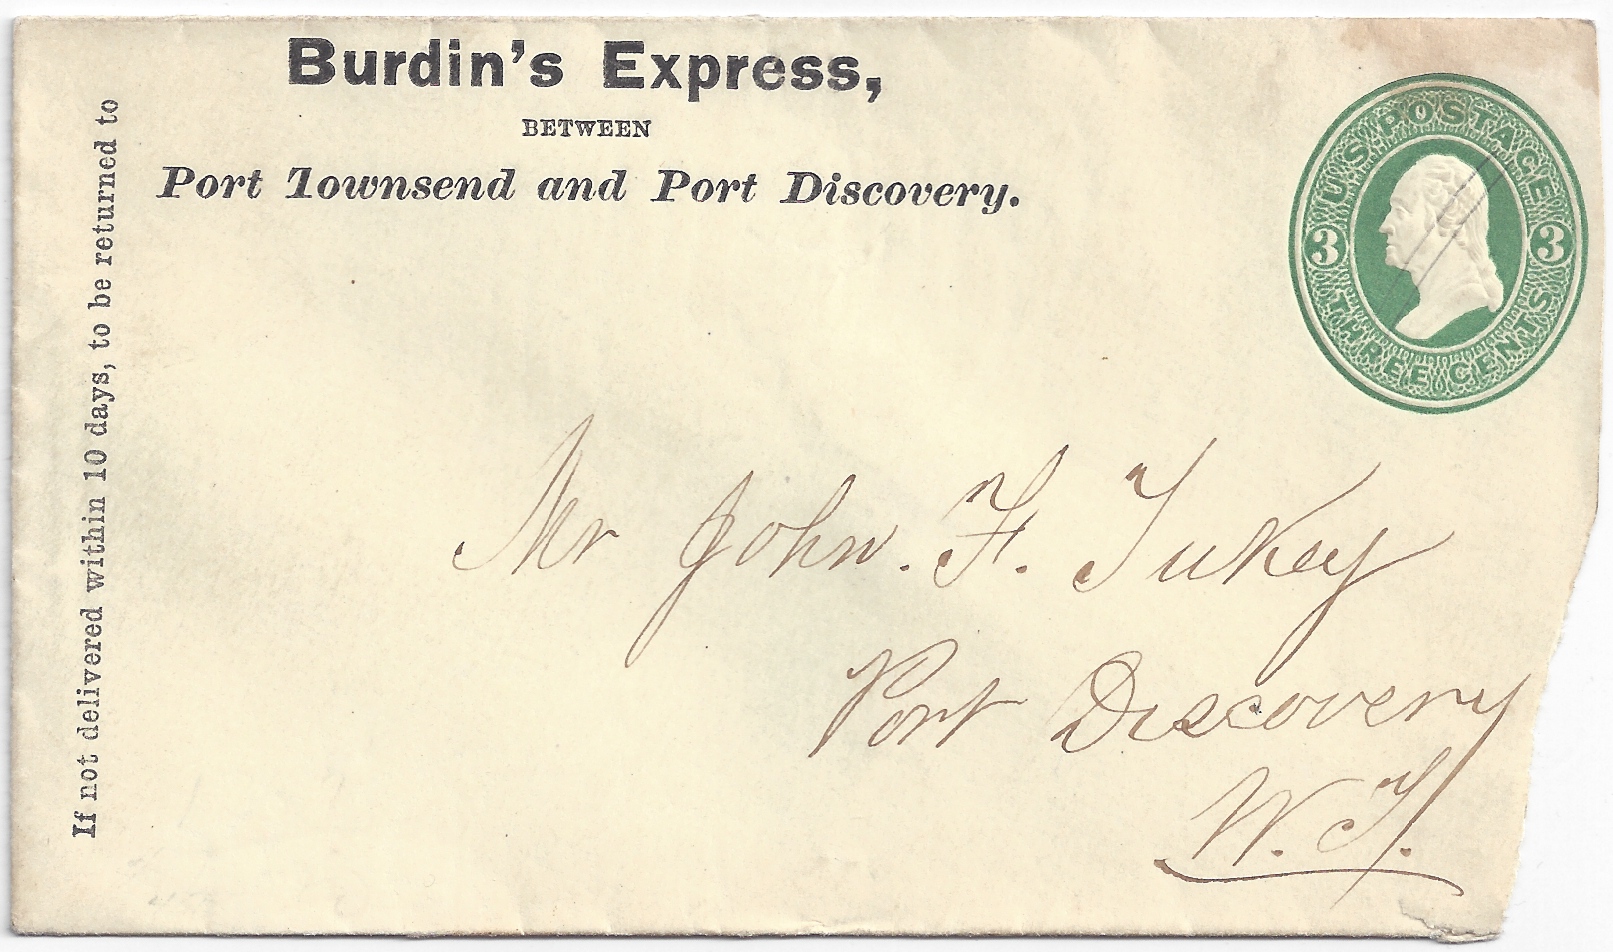 Burdin's Express,
BETWEEN
Port Townsend and Port Discovery.
If not delivered within 10 days, to be returned to
U.S. POSTAGE
3 3
THREE CENTS
Mr John. F. Tukey
Port Discovery
W. T.